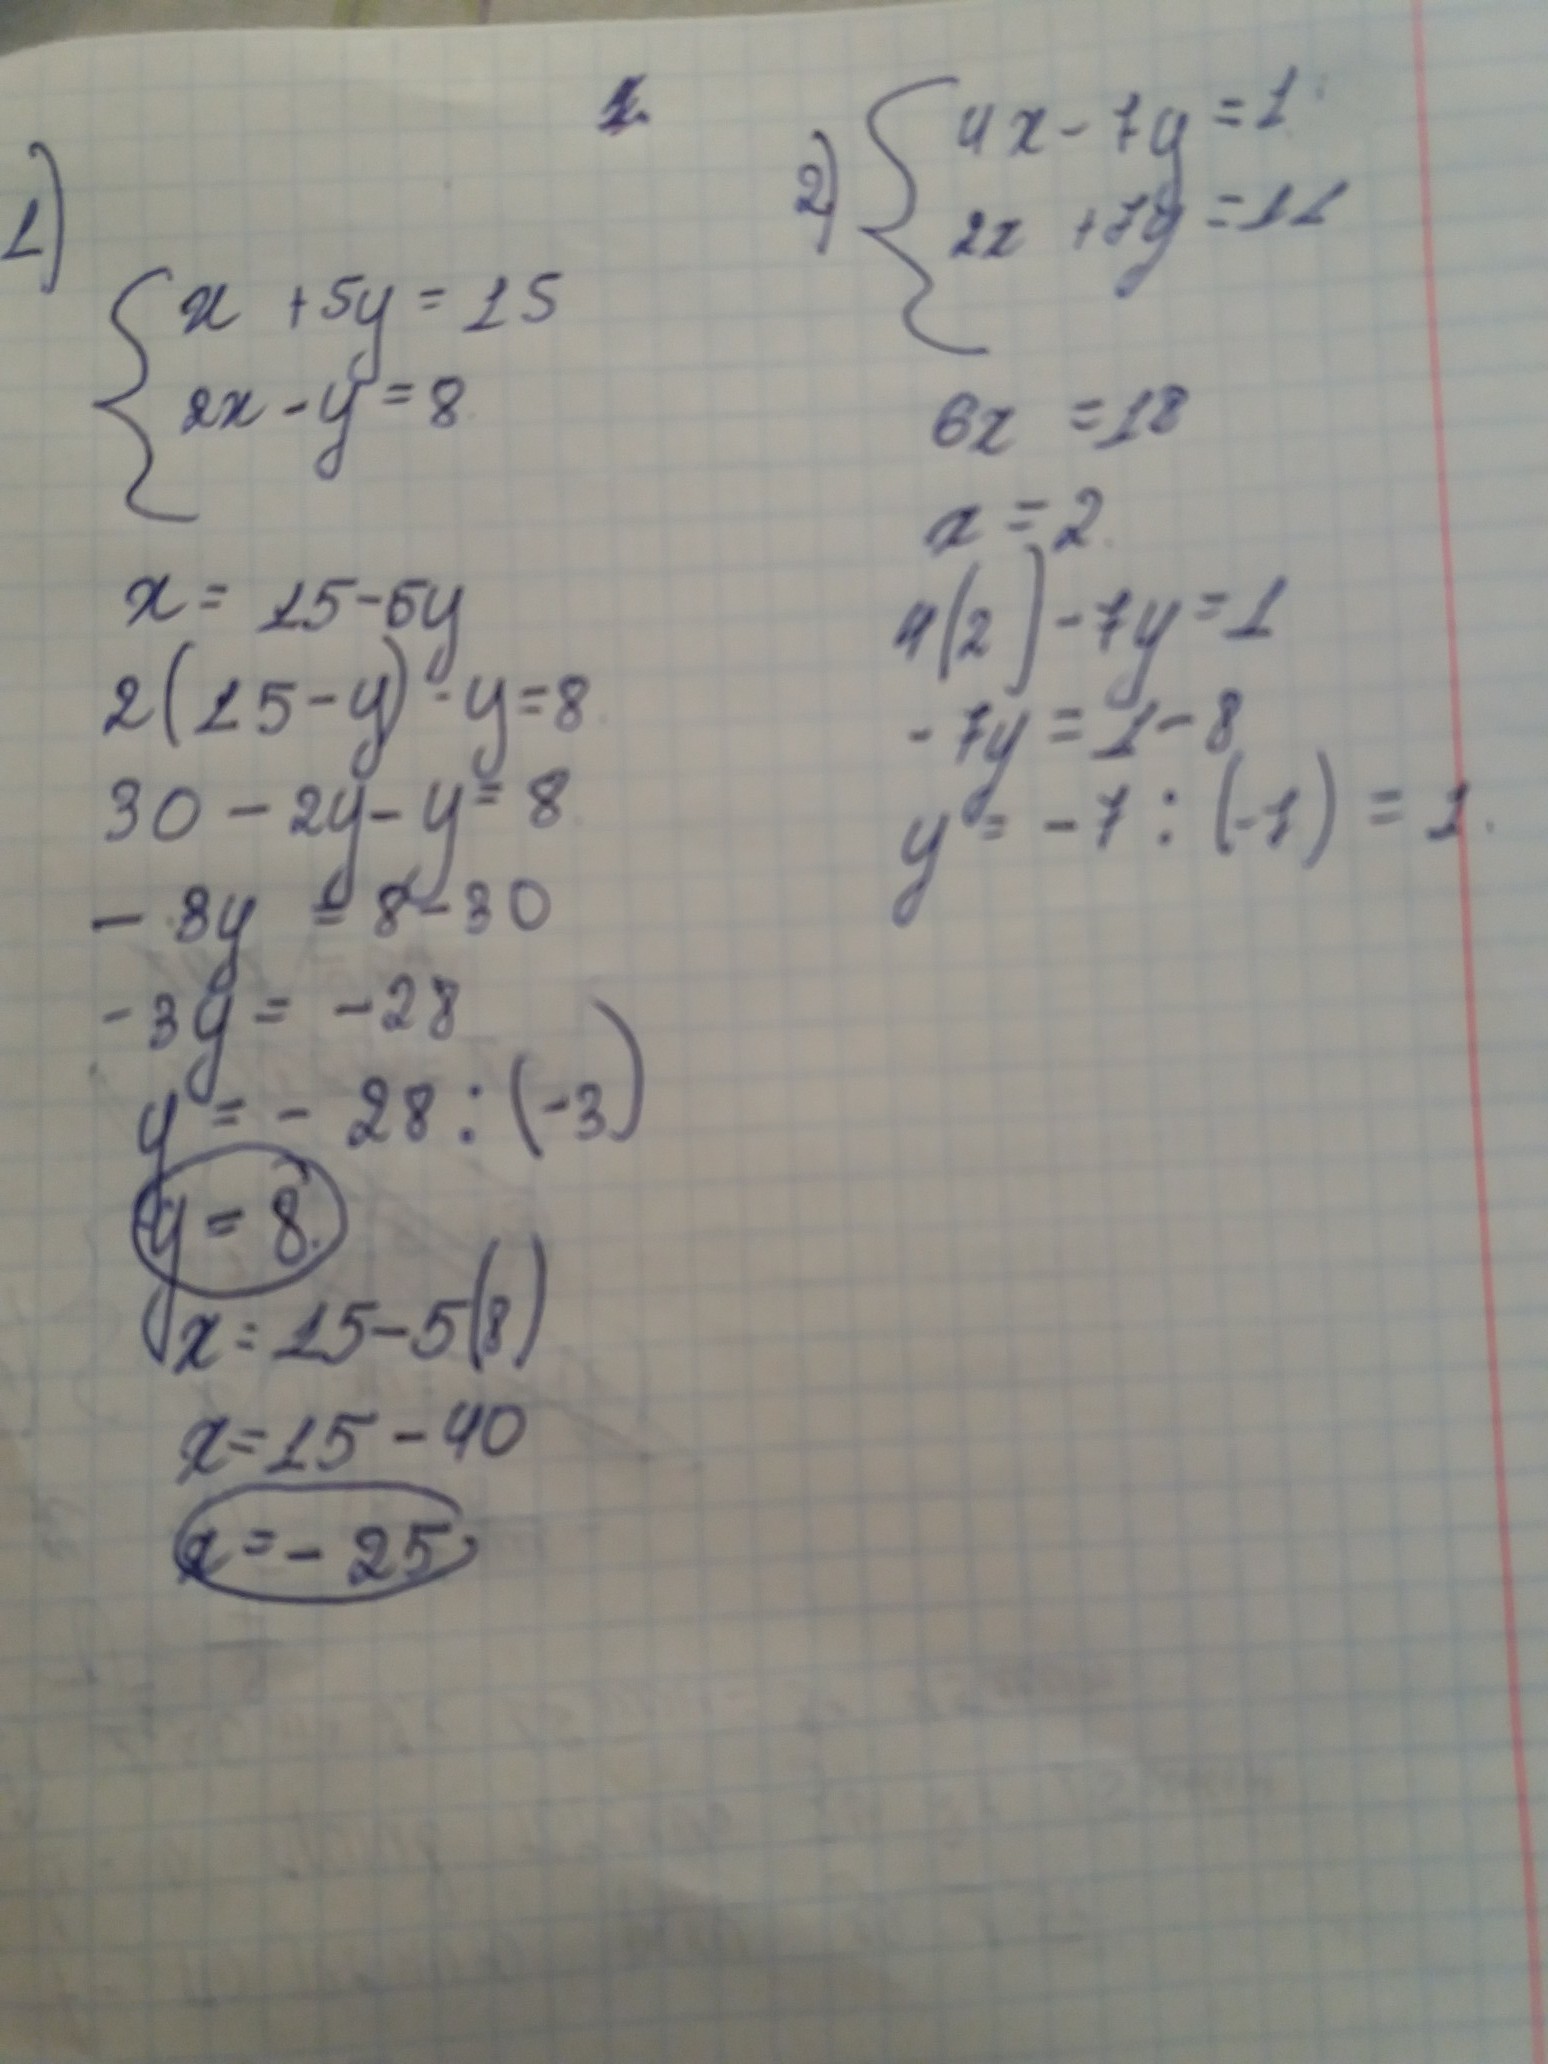 1.
1)
x + 5y = 15
2x - y = 8
x = 15 - 5y
2(15 - y) - y = 8
30 - 2y - y = 8
- 3y = 8 - 30
- 3y = - 28
y = - 28 : (-3)
y = 8
x = 15 - 5(8)
x = 15 - 40
x = - 25
2)
4x - 7y = 1
2x + 7y = 11
6x = 12
x = 2
4(2) - 7y = 1
- 7y = 1 - 8
y = - 7 : (-7) = 1.